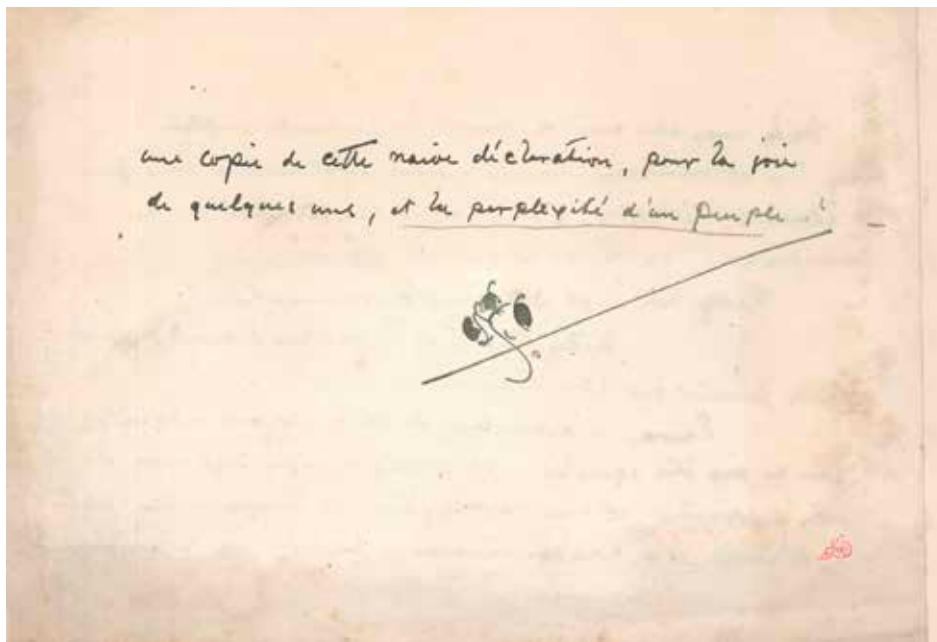 une copie de cette naïve déclaration, pour la joie
de quelques uns, et la perplexité d'un peuple !